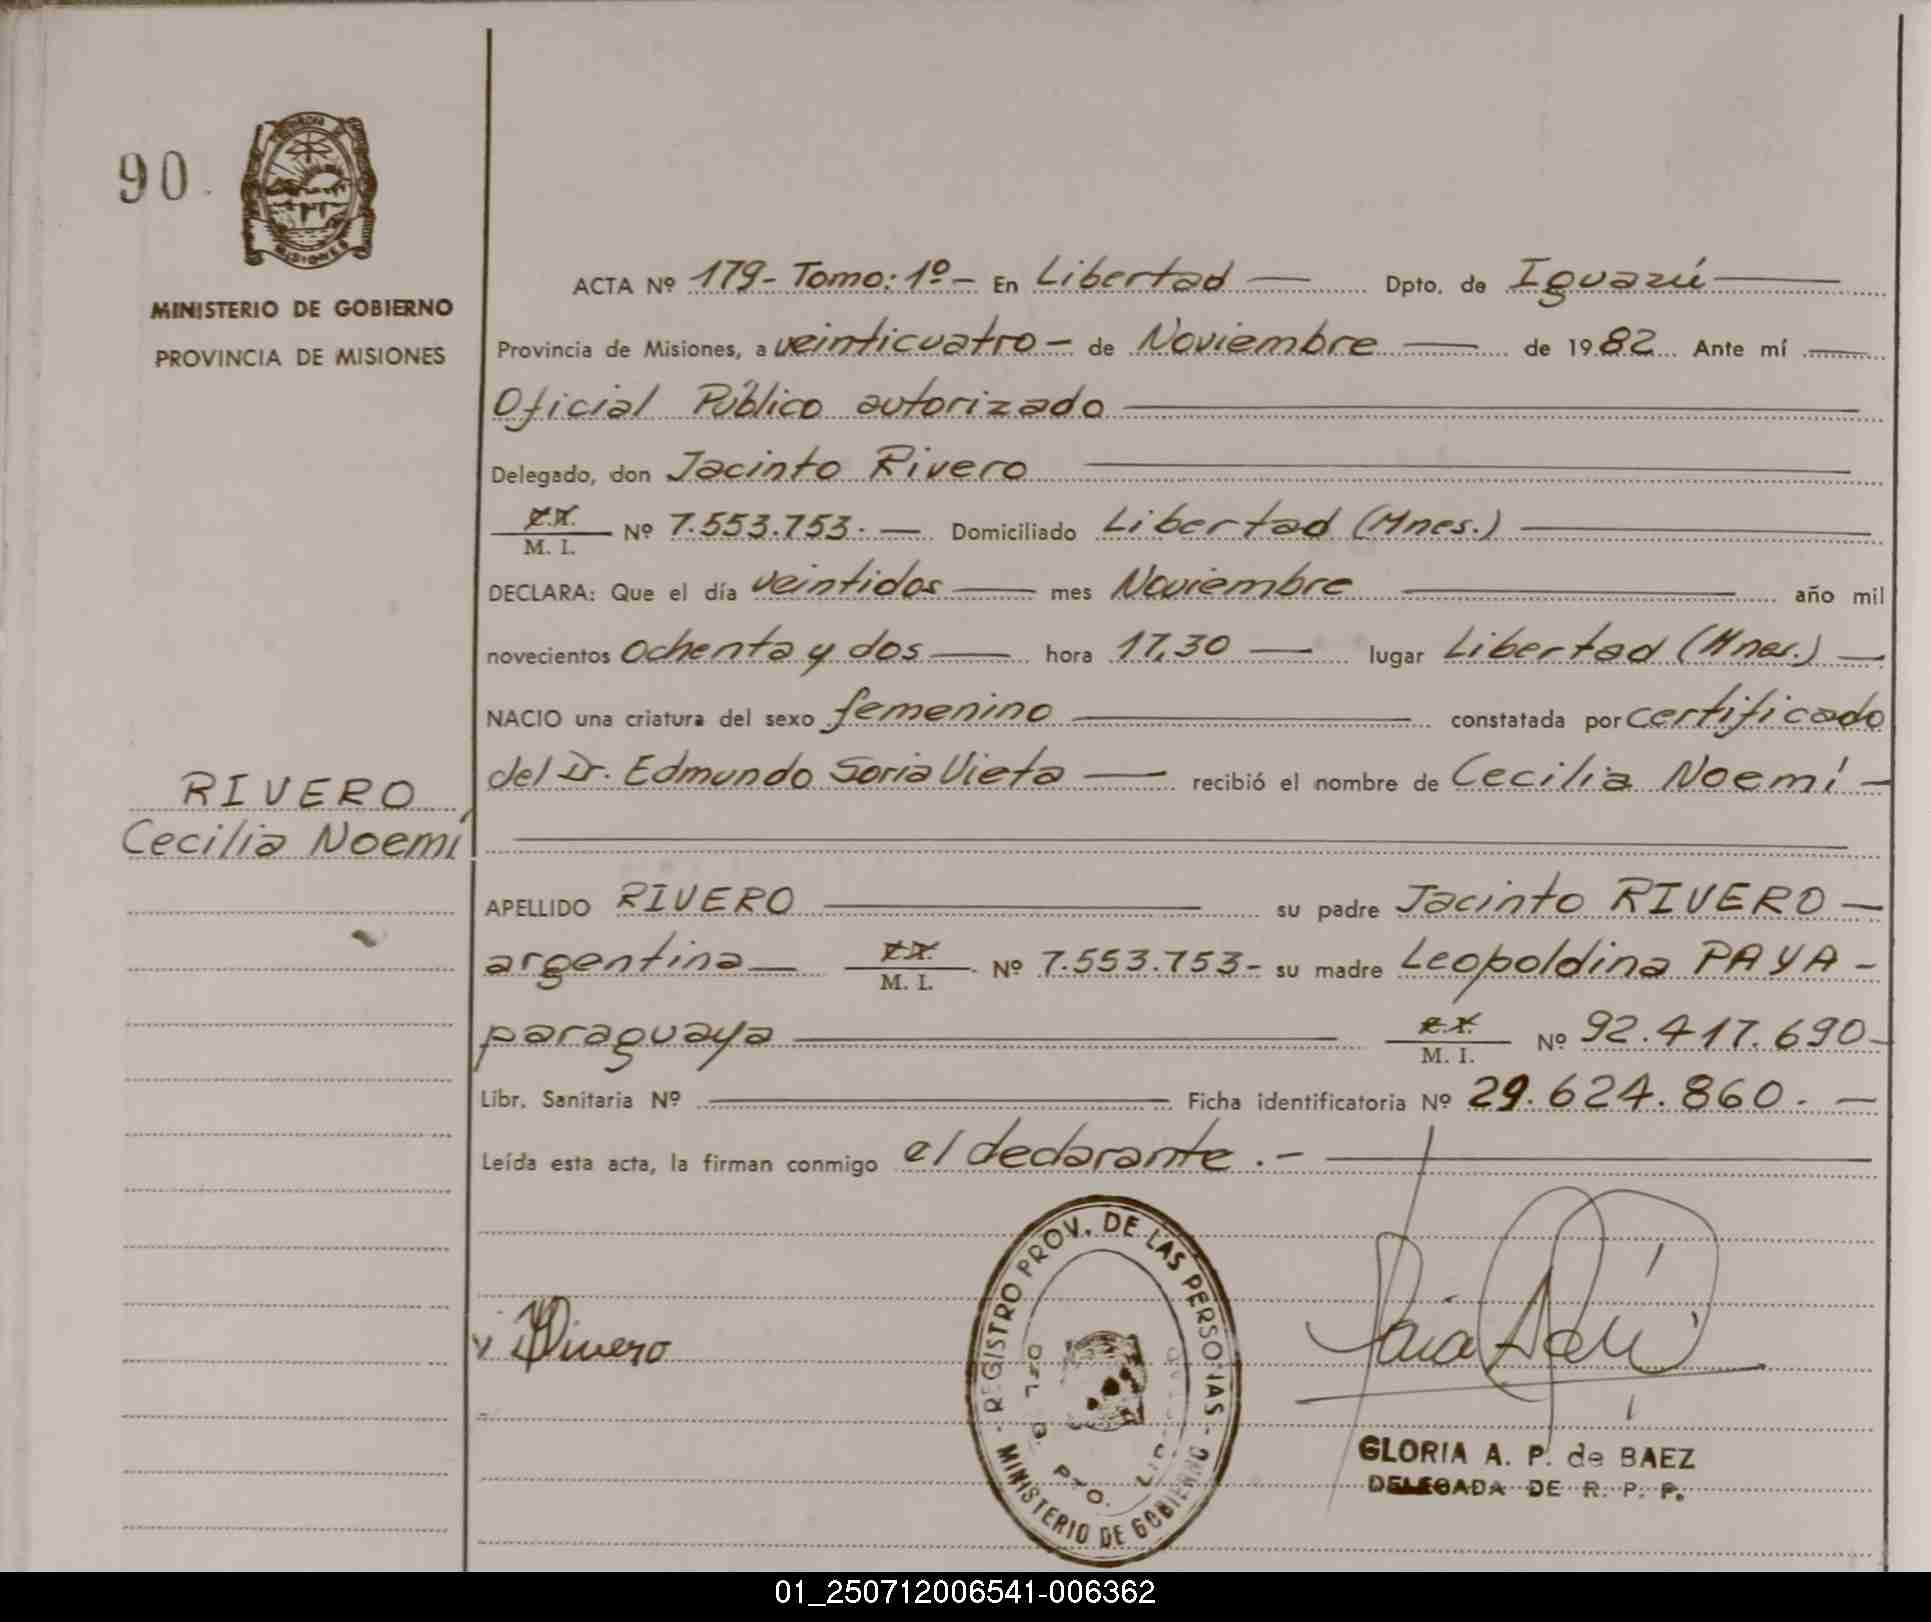 90
PROVINCIA DE
MISIONES
MINISTERIO DE GOBIERNO
PROVINCIA DE MISIONES
RIVERO
Cecilia Noemí
ACTA Nº 179- Tomo: 1º- En Libertad Dpto. de Iguazú
Provincia de Misiones, a veinticuatro - de Noviembre de 1982 Ante mí
Oficial Público autorizado
Delegado, don Jacinto Rivero
C.I.
M. I. Nº 7.553.753.- Domiciliado Libertad (Mnes.)
DECLARA: Que el día veintidos mes Noviembre año mil
novecientos ochenta y dos hora 17,30 lugar Libertad (Mnes.)
NACIO una criatura del sexo femenino constatada por certificado
del Dr. Edmundo Soria Vieta recibió el nombre de Cecilia Noemí -
APELLIDO RIVERO su padre Jacinto RIVERO
argentina C.I.
M. I. Nº 7.553.753- su madre Leopoldina PAYA -
paraguaya C.I.
M. I. Nº 92.417.690-
Libr. Sanitaria Nº Ficha identificatoria Nº 29.624.860.-
Leída esta acta, la firman conmigo el declarante.-
Rivero
REGISTRO PROV. DE LAS PERSONAS - MINISTERIO DE GOBIERNO -
PTO.
GLORIA A. P. de BAEZ
DELEGADA DE R. P. P.
01_250712006541-006362